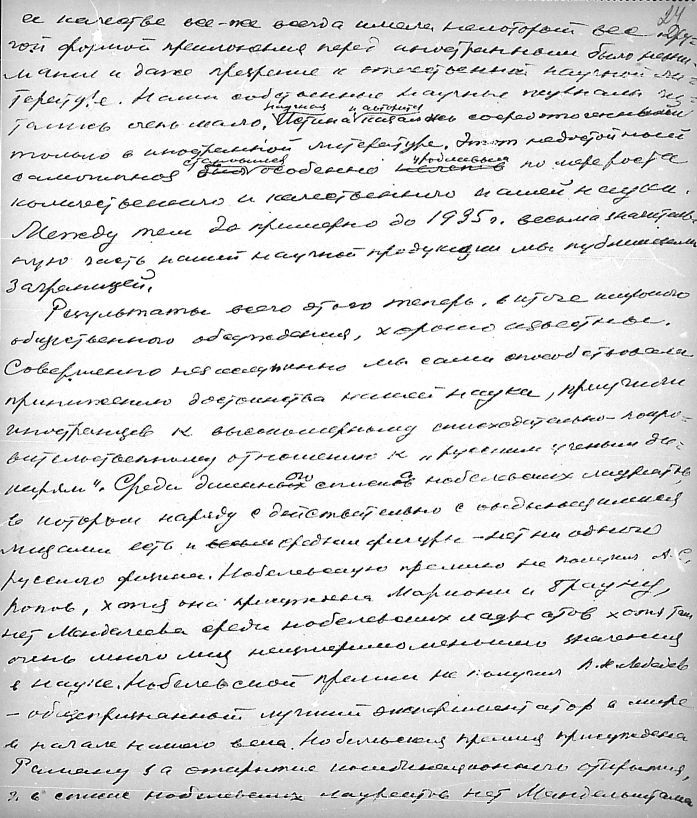 24
ее качестве все-же всегда имела некоторый вес. Дру-
гой формой преклонения перед иностранным было невни-
мание и даже презрение к отечественной научной ли-
тературе. Наши собственные научные журналы чи-
тались очень мало,
научная и авторитет
Истина казались сосредоточенными
только в иностранной литературе. Этот недостойный
становился уродливым
самообман был особенно нелеп по мере роста
количественного и качественного нашей науки.
Между тем до примерно до 1935 г. весьма значитель-
ную часть нашей научной продукции мы публиковали
заграницей.
Результаты всего этого теперь, в итоге широкого
общественного обсуждения, хорошо известны.
Совершенно незаслуженно мы сами способствовали
принижению достоинства нашей науки, приучили
иностранцев к высокомерному снисходительно-покро-
вительственному отношению к "русским ученым ди-
карям". Среди длинного списка нобелевских лауреатов,
в котором наряду с действительно с выдающимися
лицами есть и весьма средние фигуры - нет ни одного
русского физика. Нобелевскую премию не получил А.С.
Попов, хотя она присуждена Маркони и Брауну,
нет Менделеева среди нобелевских лауреатов хотя там
очень много лиц неизмеримо меньшего значения
в науке. Нобелевской премии не получил П.Н. Лебедев
- общепризнанный лучший экспериментатор в мире
в начале нашего века. Нобелевская премия присуждена
Раману за открытие комбинационного открытия,
и в списке нобелевских лауреатов нет Мандельштама